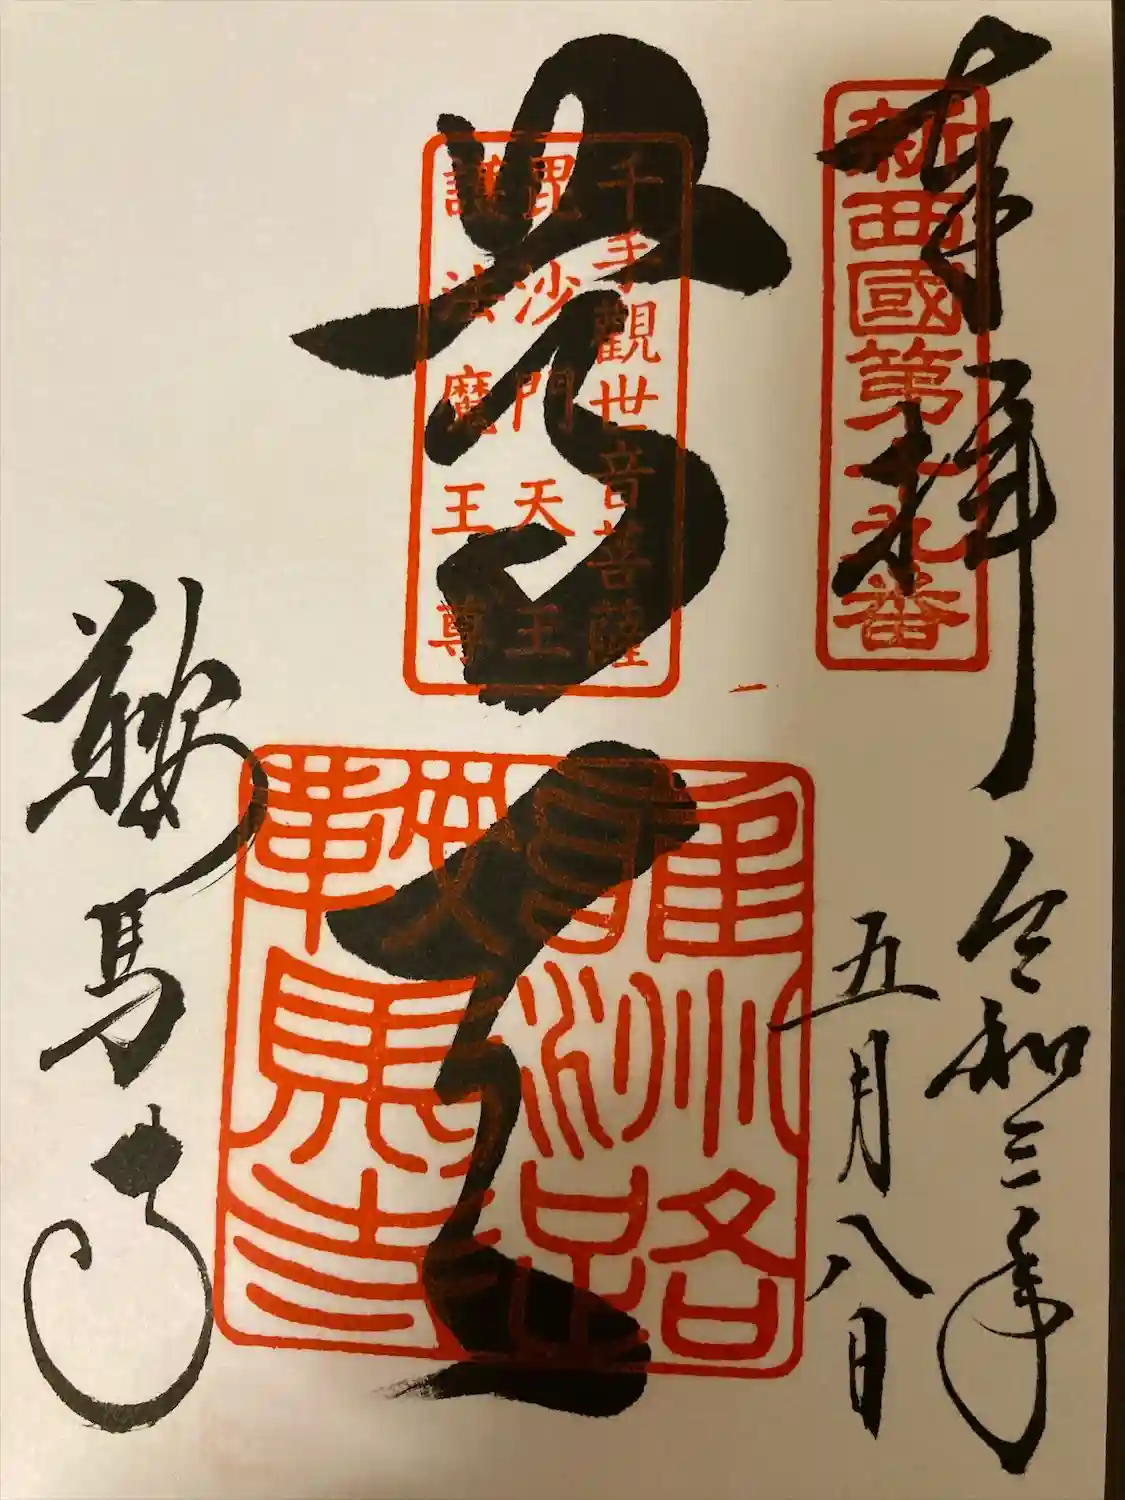 奉拝
令和三年
五月八日
新西國第十九番
千手觀世音菩薩
毘沙門天王
護法魔王尊
尊天
鞍馬寺